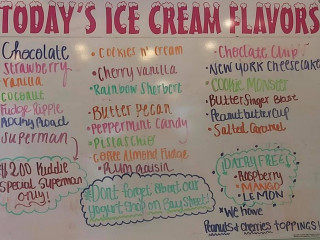 TODAY'S ICE CREAM FLAVORS
Chocolate
Strawberry
Vanilla
Coconut
Fudge Ripple
Rocky Road
Superman
$2.00 Kiddie
Special Superman
only!
Cookies n' cream
Cherry Vanilla
Rainbow Sherbert
Butter Pecan
Peppermint Candy
Pistachio
Coffee Almond Fudge
Rum Raisin
Dont forget about our
yogurt shop on Bay street!
Choclate Chip
New York Cheesecake
Cookie Monster
Butter finger Blast
Peanut butter Cup
Salted Caramel
DAIRY FREE!
Raspberry
MANGO
LEMON
We have
Peanuts + cherries TOPPINGS!